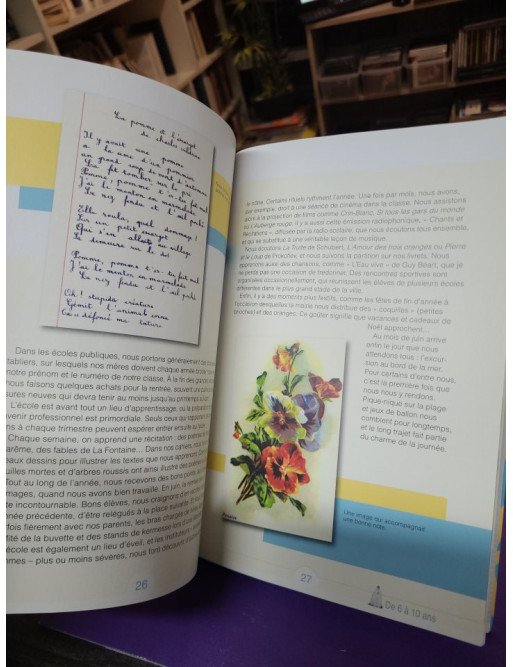 La pomme et l'escargot
de Charles Vildrac
Il y avait une pomme
a la cime d'un pommier
un grand coup de vent d'automne
La fit tomber sur le pré
Pomme, pomme t'es-tu fait mal
J'ai le menton en marmelade
Le nez fendu et l'œil poché
Elle roula, quel dommage !
Sur un petit escargot
Qui s'en allait au village
Sa demeure sur le dos
Pomme, pomme t'es-tu fait mal
J'ai le menton en marmelade
Le nez fendu et l'œil poché
Oh ! stupide créature
Gémit l'animal cornu
T'as défoncé ma toiture
Dans les écoles publiques, nous portons généralement des
tabliers, sur lesquels nos mères doivent chaque année broder
notre prénom et le numéro de notre classe. À la fin des
nous faisons quelques achats pour la rentrée, souvent un
sures neuves qui devra tenir au moins jusqu'au printemps
L'école est avant tout un lieu d'apprentissage, où la
venir professionnel est primordiale. Seuls ceux qui
s à chaque trimestre peuvent espérer entrer ensuite au
Chaque semaine, on apprend une récitation : des poèmes
arême, des fables de La Fontaine... Dans nos cahiers,
eaux dessins pour illustrer les textes que nous apprenons.
uilles mortes et d'arbres roussis ont ainsi illustré des poèmes
Tout au long de l'année, nous recevons des bons points
mages, quand nous avons bien travaillé. En juin, la remise
te incontournable. Bons élèves, nous craignons d'en
nnée précédente, d'être relégués à la place suivante. Et
rfois fièrement avec nos parents, les bras chargés de
fité de la buvette et des stands de kermesse lors d'une
école est également un lieu d'éveil, et les
mmes – plus ou moins sévères, nous font découvrir
26
le nôtre. Certains rituels rythment l'année. Une fois par mois, nous avons,
par exemple, droit à une séance de cinéma dans la classe. Nous assistons
alors à la projection de films comme Crin-Blanc, Si tous les gars du monde
ou L'Auberge rouge. Il y a aussi cette émission radiophonique, « Chants et
Récitations », diffusée par la radio scolaire, que nous écoutons tous ensemble,
et qui se substitue à une véritable leçon de musique.
Nous écoutons La Truite de Schubert, L'Amour des trois oranges ou Pierre
et le Loup de Prokofiev, et nous suivons la partition sur nos livrets. Nous
apprenons aussi des chansons, comme « L'Eau vive » de Guy Béart, que je
ne perds pas une occasion de fredonner. Des rencontres sportives sont
organisées occasionnellement, qui réunissent les élèves de plusieurs écoles
différentes dans le plus grand stade de la ville.
Enfin, il y a des moments plus festifs, comme les fêtes de fin d'année à
l'occasion desquelles la mairie nous distribue des « coquilles » (petites
brioches) et des oranges. Ce goûter signifie que vacances et cadeaux de
Noël approchent...
Au mois de juin arrive
enfin le jour que nous
attendons tous : l'excur-
sion au bord de la mer.
Pour certains d'entre nous,
c'est la première fois que
nous nous y rendons.
Pique-nique sur la plage
et jeux de ballon nous
comblent pour longtemps,
et le long trajet fait partie
du charme de la journée.
Une image qui accompagnait
une bonne note.
27
De 6 à 10 ans